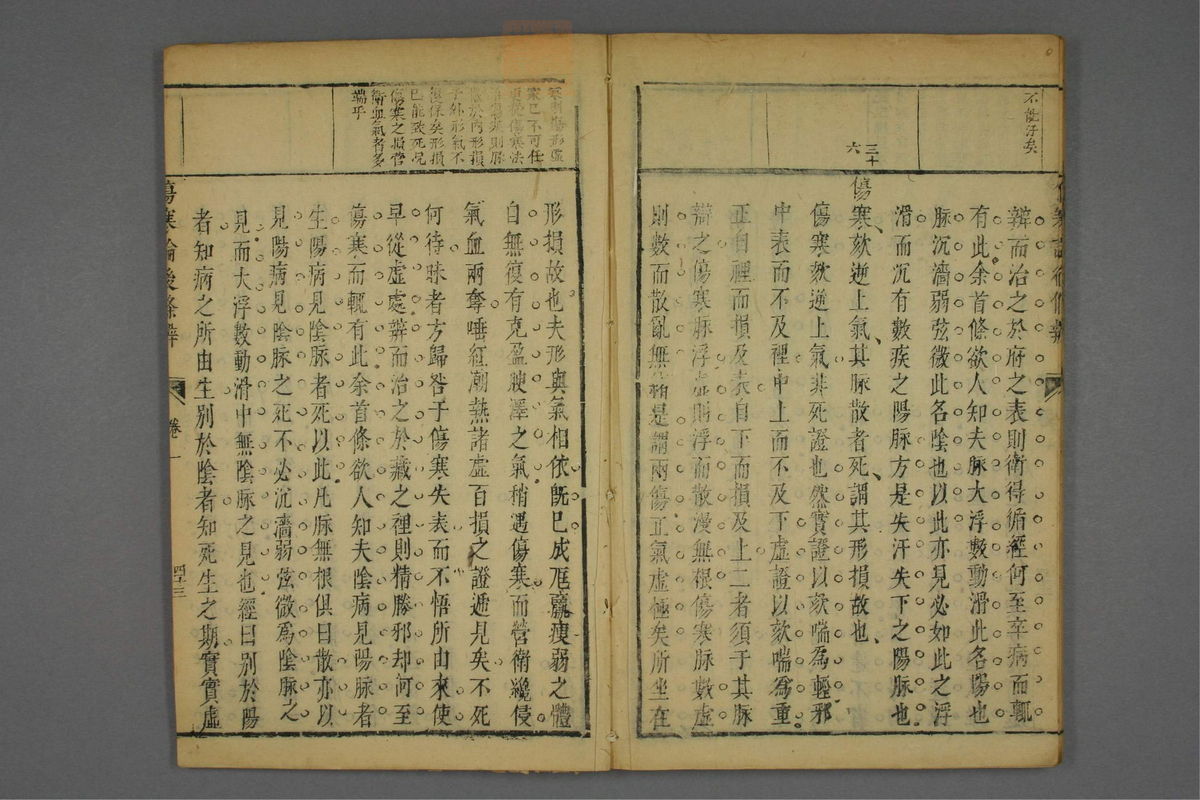 不能汗矣
三十六
辨而治之於府之表則衛得循經何至卒病而輒
有此余首條欲人知夫脉大浮數動滑此名陽也
脉沉濇弱弦微此名陰也以此亦見必如此之浮
滑而沉有數疾之陽脉方是失汗失下之陽脉也
傷寒欬逆上氣其脉散者死謂其形損故也
傷寒欬逆上氣非死證也然實證以欬喘為輕邪
中表而不及裡中上而不及下虛證以欬喘為重
正自裡而損及表自下而損及上二者須于其脉
辯之傷寒脉浮虛則浮而散漫無根傷寒脉數虛
則數而散亂無緒是謂兩傷正氣虛極矣所坐在
傷寒論後條辨
形虛
寒已不可任
傷寒法
則脉
於內形損
于外形氣不
復保矣形損
已能致死况
傷寒之損營
衛血氣者多
端乎
形損故也夫形與氣相依既已成尫羸瘦弱之體
自無復有克盈腴澤之氣稍遇傷寒而營衛纔侵
氣血兩奪唾紅潮熱諸虛百損之證逓見矣不死
何待昧者方歸咎于傷寒失表而不悟所由來使
早從虛處辨而治之於藏之裡則精勝邪却何至
傷寒而輒有此余首條欲人知夫陰病見陽脉者
生陽病見陰脉者死以此凡脉無根俱曰散亦以
見陽病見陰脉之死不必沉濇弱弦微為陰脉之
見而大浮數動滑中無陰脉之見也經曰別於陽
者知病之所由生別於陰者知死生之期實實虛
傷寒論後條辨
卷一
四十三